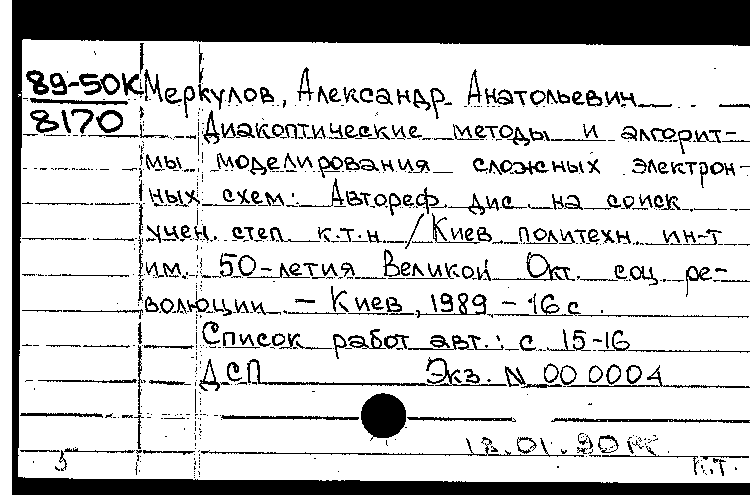 89-50К Меркулов, Александр Анатольевич
8170 Диакоптические методы и алгорит-
мы моделирования сложных электрон-
ных схем: Автореф. дис. на соиск.
учен. степ. к.т.н / Киев политехн. ин-т
им. 50-летия Великой Окт. соц. ре-
волюции. – Киев, 1989 – 16 с.
Список работ авт.: с 15-16
ДСП Экз. N 00 0004
18.01.90
К.Т.